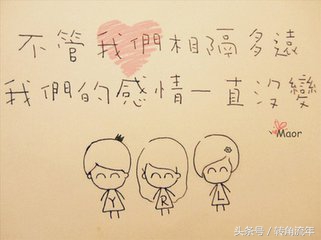 不管我們相隔多遠
我們的感情一直沒變
Maor
Y R L
头条号 / 转角流年